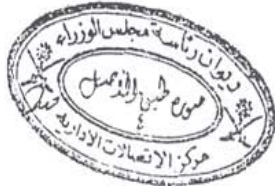 ديوان رئاسة مجلس الوزراء
صورة طبق الأصل
٤
مركز الاتصالات الادارية